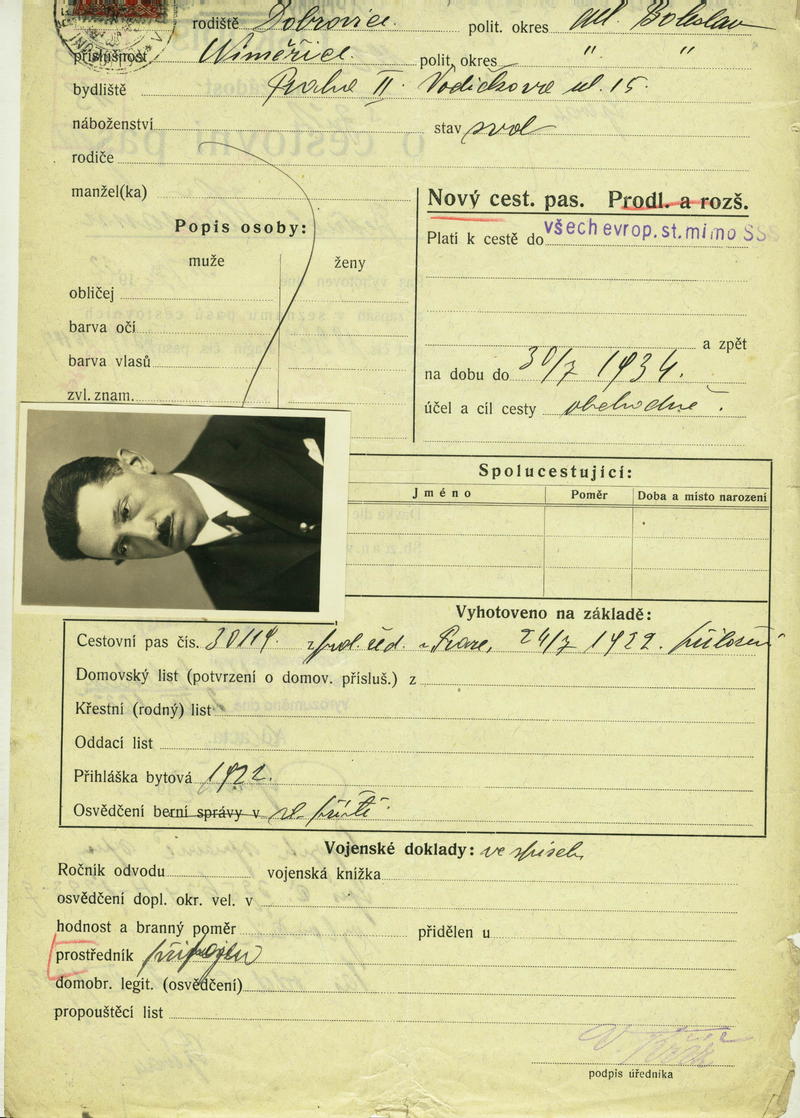 rodiště Dobrovice. polit. okres Ml. Boleslav
příslušnost polit. okres " "
bydliště Praha II. Vodičkova ul. 15.
náboženství stav svob
rodiče
manžel(ka)
Nový cest. pas. Prodl. a rozš.
Popis osoby:
Platí k cestě do všech evrop. st. mimo SS
muže ženy
obličej
barva očí
a zpět
barva vlasů
na dobu do 30/7 1934.
zvl. znam.
účel a cíl cesty obchodně.
Spolucestující:
Jméno Poměr Doba a místo narození
Vyhotoveno na základě:
Cestovní pas čís. 30114 pol. řed. v Praze, 24/7 1922.
Domovský list (potvrzení o domov. přísluš.) z
Křestní (rodný) list
Oddací list
Přihláška bytová 1922.
Osvědčení berní správy v
Vojenské doklady: ve spisech
Ročník odvodu vojenská knížka
osvědčení dopl. okr. vel. v
hodnost a branný poměr přidělen u
prostředník připojen
domobr. legit. (osvědčení)
propouštěcí list
podpis úředníka